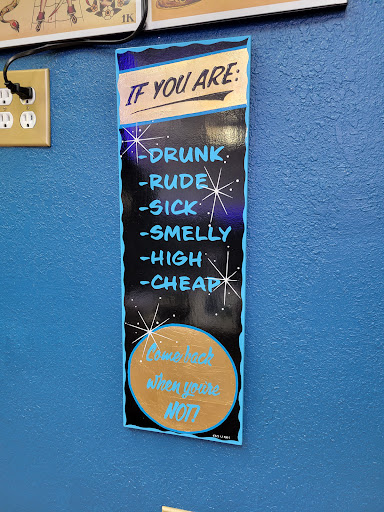 1K
IF YOU ARE:
-DRUNK
-RUDE
-SICK
-SMELLY
-HIGH
-CHEAP
Come back
when you're
NOT!